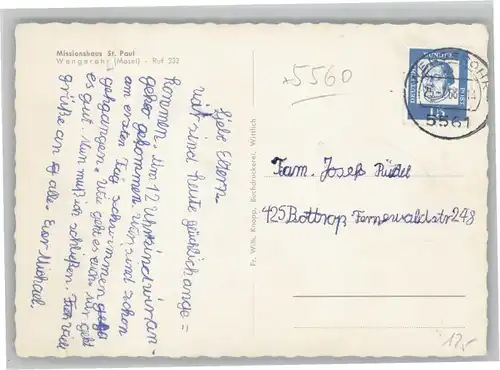 Missionshaus St. Paul
Wengerohr (Mosel) - Ruf 332
5560
Liebe Eltern.
wir sind heute glücklich ange=
kommen. Um 12 Uhr sind wir an-
gekommen. Wir sind schon
am ersten Tag schwimmen
gehgangen. Wie geht es euch. Mir geht
es gut. Nun muß ich schließen. Für viele
grüße an alle. Euer Michael.
Fr. Wilh. Knopp, Buchdruckerei, Wittlich
DEUTSCHE BUNDESPOST
15
5561
Fam. Josef
425 Bottrop Fernewaldstr 248
12,-